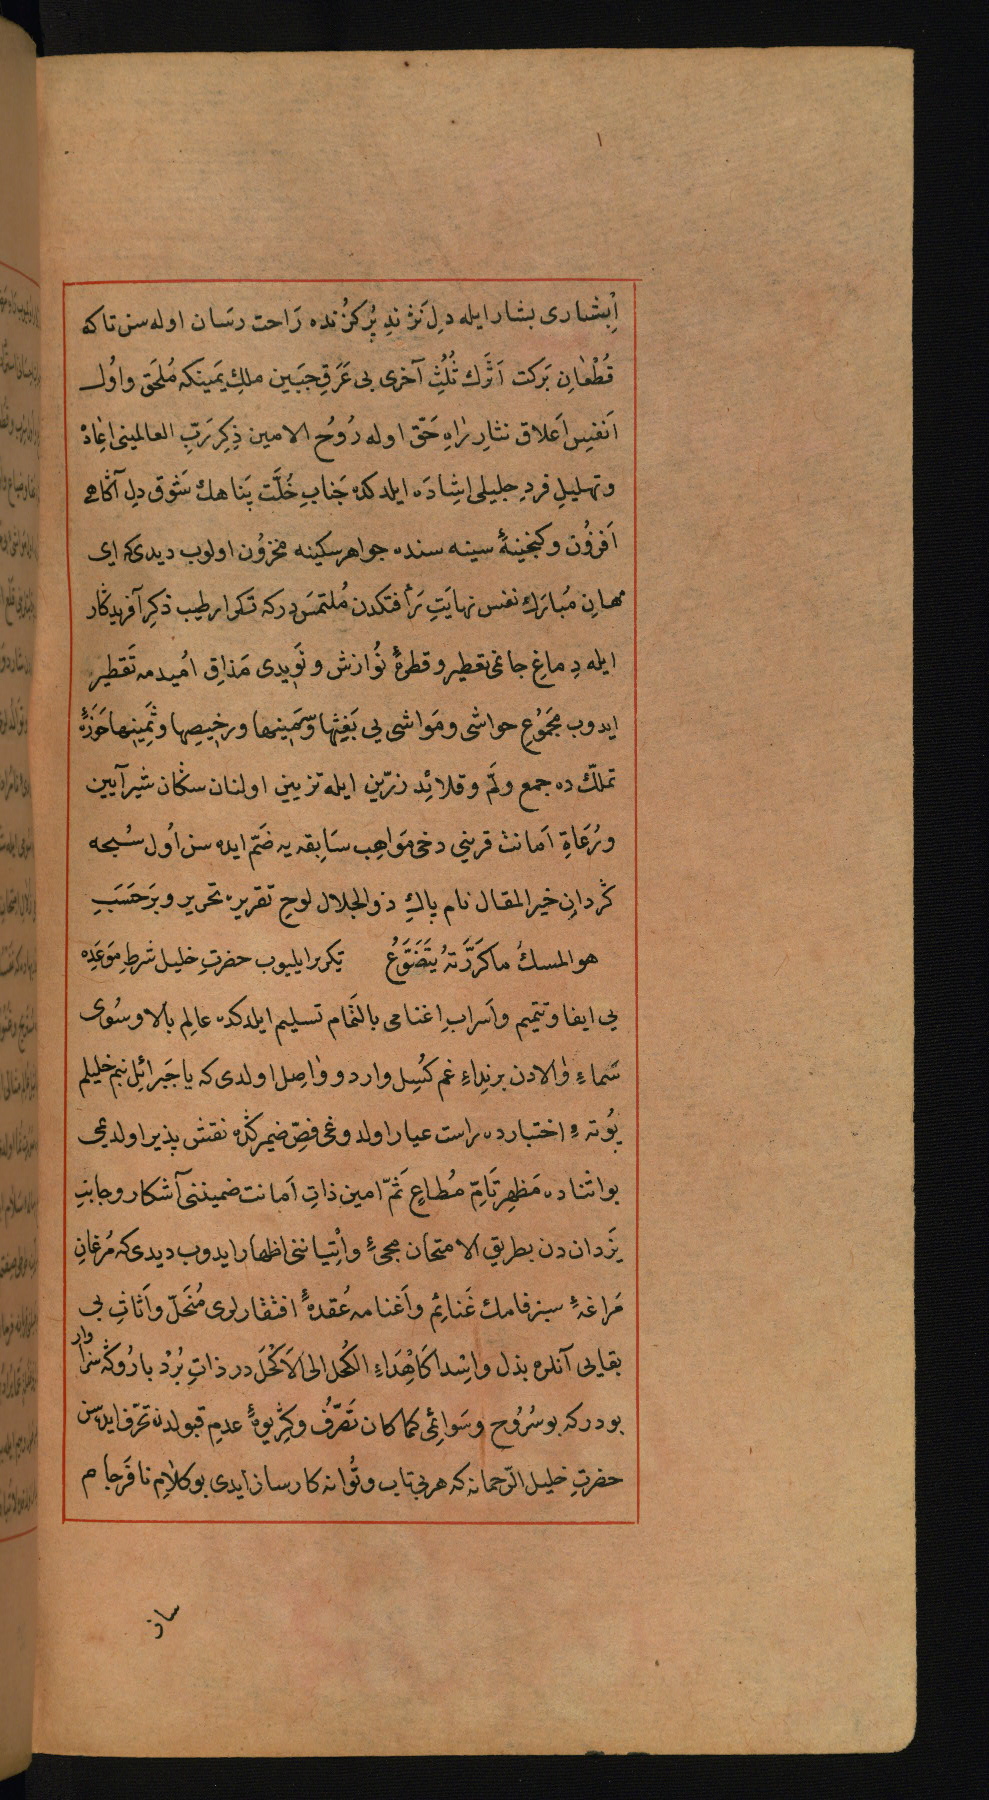 ١
اِبشاری بشار ایله دلِ نَژندِ پُر كَزنده رَاحت رسَان اوله سن تا كه
قُطْعَانِ بَركت اَثَرك ثُلُثِ آخری بی عَرَقِ جبَین ملكِ یَمینكه مُلحَق واُول
اَنفیِس اَعلاق نثارِ رٰاهِ حَقّ اوله رُوُح الامین ذِكِر رَبِّ العالمینی اِعَادْ
وتهلیلِ فردِ جلیلی اِشِادَه ایلدكده جَنابِ خُلَّت پَناهك شَوق دلِ آكاهی
اَفزوُن وكنجینهٔ سینه سنده جواهر سكینه مخزوُن اولوب دیدی كه ای
مهانِ مُبارَك نفس نهایَتِ رَأفتكدن مُلتمسَدركه تكرار طیب ذكِر آفریدكار
ایله دِماغِ جانمی تعطیر و قطرهٔ نُوازش و نَویدی مَذاقِ امُیدمه تَقطیر
ایدوب مجَموُعِ حواشی ومَواشی یی بَغِثِها وسَمیِنها ورخیِصِها وثَمیِنِها حَوزَهٔ
تملّك ده جمع ولَمّ و قلائدِ زرّین ایله تزیین اولنان سكان شیر آیین
ورُعَاةِ اَمانت قرینی دخی مَواهِبِ سَابقه یه ضَمّ ایده سن اُول سُبحه
كردانِ خیر المقال نام پاكِ ذو الجلال لوحِ تقریره تحریر وبَرحَسَبِ
هو المسكُ ماكَرَّرتَهُ یَتَضَوَّعُ تكریر ایلیوب حضرتِ خلیل شرطِ مَوعَدِه
یی ایفا و تتمیم واَسرابِ اغنامی بالتَمام تسلیم ایلدكده عالِم بالا وسُوی
سَماءِ وٰالادن برنِداءِ غم كُسِل وارد و وٰاصِل اولدی كه یا جَبرائِل بنم خلیلم
بُوتهٔ اختبارده راست عیار اولدوغی فصِّ ضمیركده نقش پذیر اولدیمی
بو اثناده مَظهرِ تَامِّ مُطاعٍ ثَمّ امین ذاتِ اَمانت ضمیننی آشكار وجانبِ
یَزدان دن بطریقِ الامتحان مجیٔ واِتْیاننی اظهار ایدوب دیدی كه مُرغانِ
مَراغهٔ سبزفامك غَنائِم واَغنامه عُقدهٔ افتقارلری مُنَحَلّ واَثاثِ بی
بقایی آنلره بذل واِسْدا كَاهْدَاءِ الكُحل الی الَاكْحَل در ذاتِ بُرْد باروُكه سزا وار
بودركه بوسُروُح وسَوائِمی كما كان تَصَرّفُ وكِریوهٔ عدمِ قبولدنه تحرّف ایده سن
حضرتِ خلیل الرّحمانه كه هر بی تاب وتُوانه كارساز ایدی بو كلاٰمِ نافَرجام
ساز